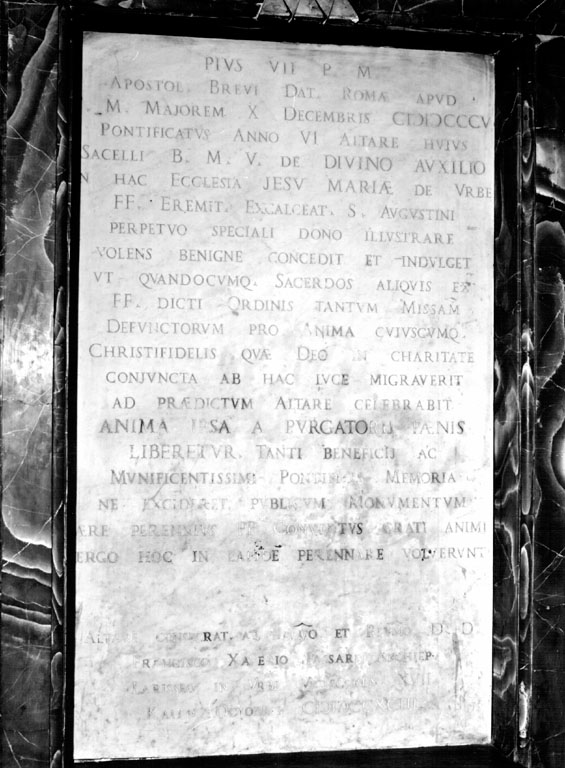 PIVS VII P. M.
APOSTOL. BREVI DAT. ROMÆ APVD
M. MAJOREM X DECEMBRIS CIƆIƆCCCV
PONTIFICATVS ANNO VI ALTARE HVIVS
SACELLI B. M. V. DE DIVINO AVXILIO
N HAC ECCLESIA JESV MARIÆ DE VRBE
FF. EREMIT. EXCALCEAT. S. AVGVSTINI
PERPETVO SPECIALI DONO ILLVSTRARE
VOLENS BENIGNE CONCEDIT ET INDVLGET
VT QVANDOCVMQ. SACERDOS ALIQVIS EX
FF. DICTI ORDINIS TANTVM MISSAM
DEFVNCTORVM PRO ANIMA CVIVSCVMQ.
CHRISTIFIDELIS QVÆ DEO IN CHARITATE
CONJVNCTA AB HAC LVCE MIGRAVERIT
AD PRÆDICTVM ALTARE CELEBRABIT
ANIMA IPSA A PVRGATORII PÆNIS
LIBERETVR. TANTI BENEFICII AC
MVNIFICENTISSIMI PONTIFIC. MEMORIA
NE EXCIDERET PVBLICVM MONVMENTVM
ÆRE PERENNIVS GRATI ANIMI
ERGO HOC IN LAPIDE PERENNARE VOLVERVNT
ALTARE ET D. D.
FRANCISCO XAVERIO PASSARI ARCHIEP.
XVII
KALEND.